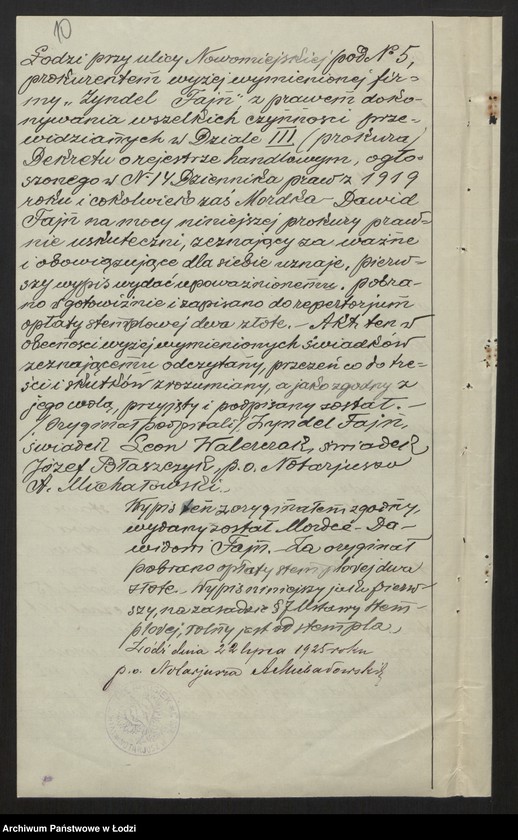 10
Łodzi przy ulicy Nowomiejskiej pod № 5,
prokurentem wyżej wymienionej fir=
my „Zyndel Fajn" z prawem doko=
nywania wszelkich czynności prze=
widzianych w Dziale III (prokura)
Dekretu o rejestrze handlowym, ogło=
szonego w № 14 Dziennika praw z 1919
roku i cokolwiek zaś Mordka-Dawid
Fajn na mocy niniejszej prokury praw=
nie uskuteczni, zeznający za ważne
i obowiązujące dla siebie uznaje. Pierw=
szy wypis wydać upoważnionemu. Pobra=
no w gotowiźnie i zapisano do repertorjum
opłaty stemplowej dwa złote. – Akt ten w
obecności wyżej wymienionych świadków
zeznającemu odczytany, przezeń co do tre=
ści i skutków zrozumiany, a jako zgodny z
jego wolą, przyjęty i podpisany został. –
/. Oryginał podpisali:/ Zyndel Fajn,
świadek Leon Walerczak, świadek
Józef Błaszczyk, p.o. Notarjusza
A. Michałowski.
Wypis ten z oryginałem zgodny,
wydany został Mordce-Da=
widowi Fajn. – Za oryginał
pobrano opłaty stemplowej dwa
złote. – Wypis niniejszy jako pierw=
szy, na zasadzie § 7 Ustawy stem=
plowej, wolny jest od stempla.
Łódź dnia 22 lipca 1925 roku
p.o. Notarjusza A Michałowski
Archiwum Państwowe w Łodzi